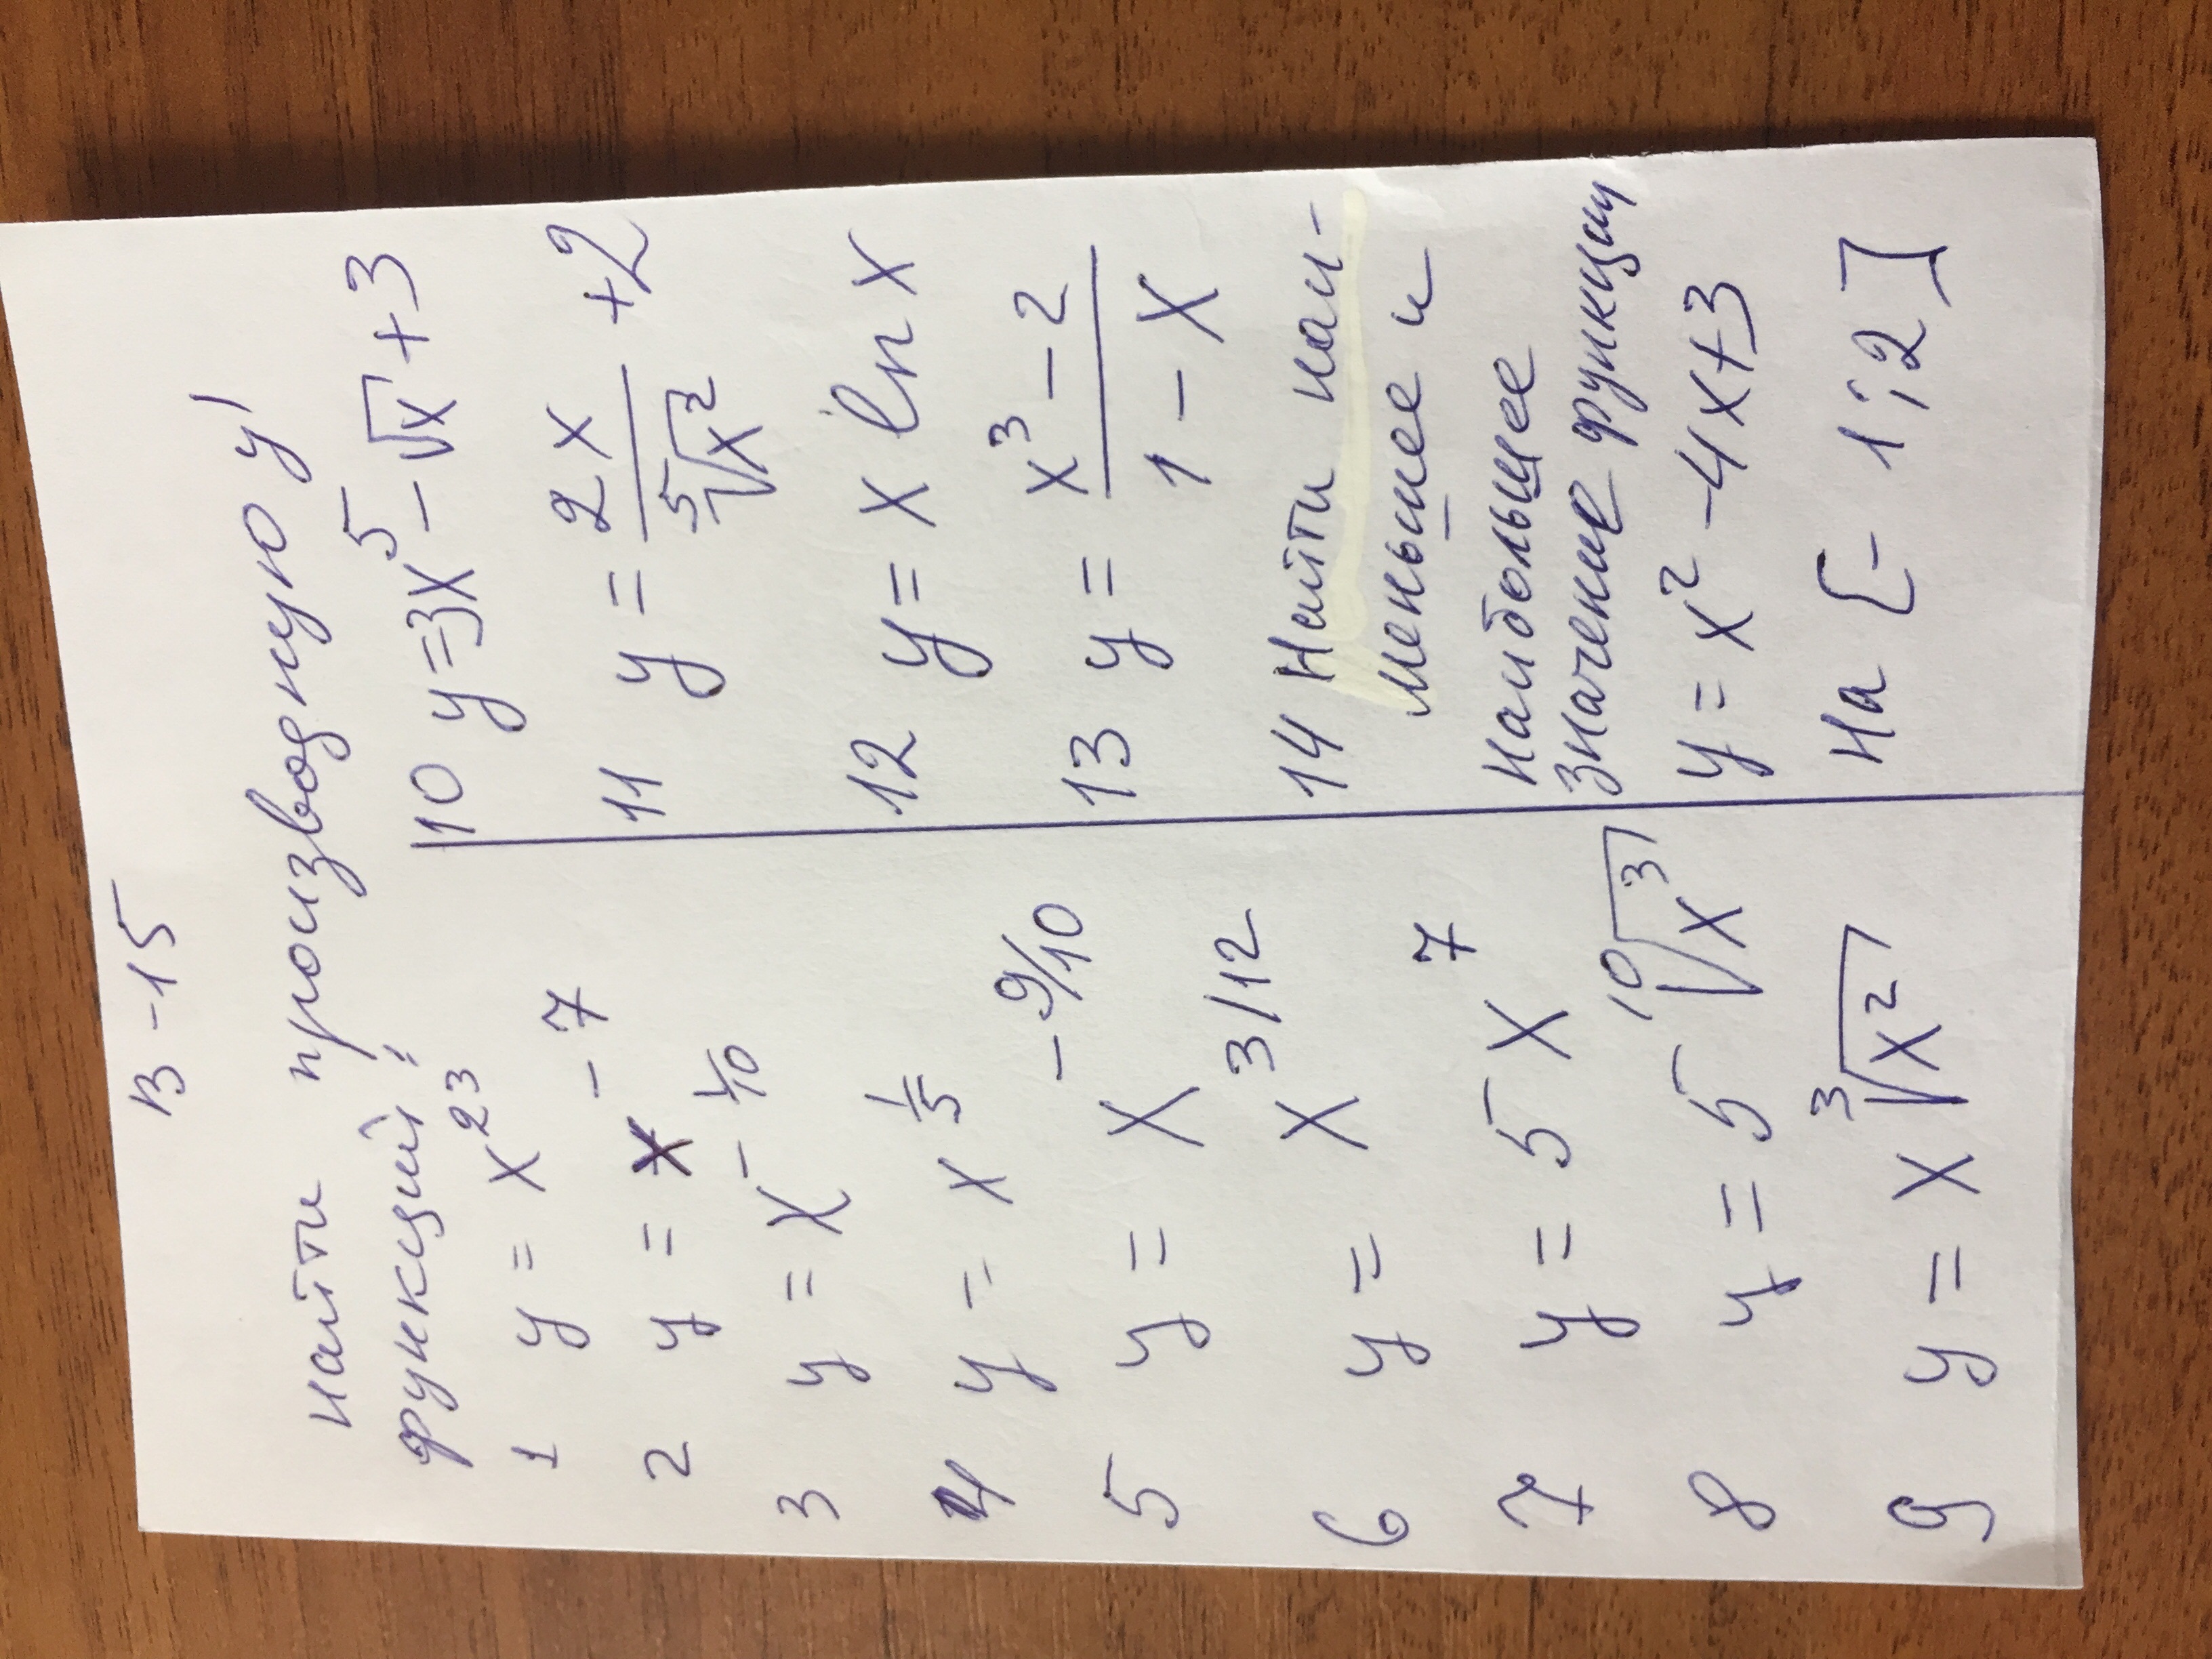 В-15
Найти производную y'
функций:
1 y = x^23
2 y = x^-7
3 y = x^-1/10
4 y = x^1/5
5 y = x^-9/10
6 y = x^3/12
7 y = 5x^7
8 y = 5 ¹⁰√x³
9 y = x ³√x²
10 y=3x⁵-√x+3
11 y = 2x/⁵√x² +2
12 y = x ln x
13 y = x³-2/1-x
14 Найти наи-
меньшее и
наибольшее
значение функции
y = x²-4x+3
На [-1;2]